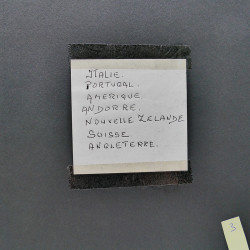 ITALIE.
PORTUGAL.
AMERIQUE.
ANDORRE.
NOUVELLE ZELANDE
SUISSE
ANGLETERRE.
3